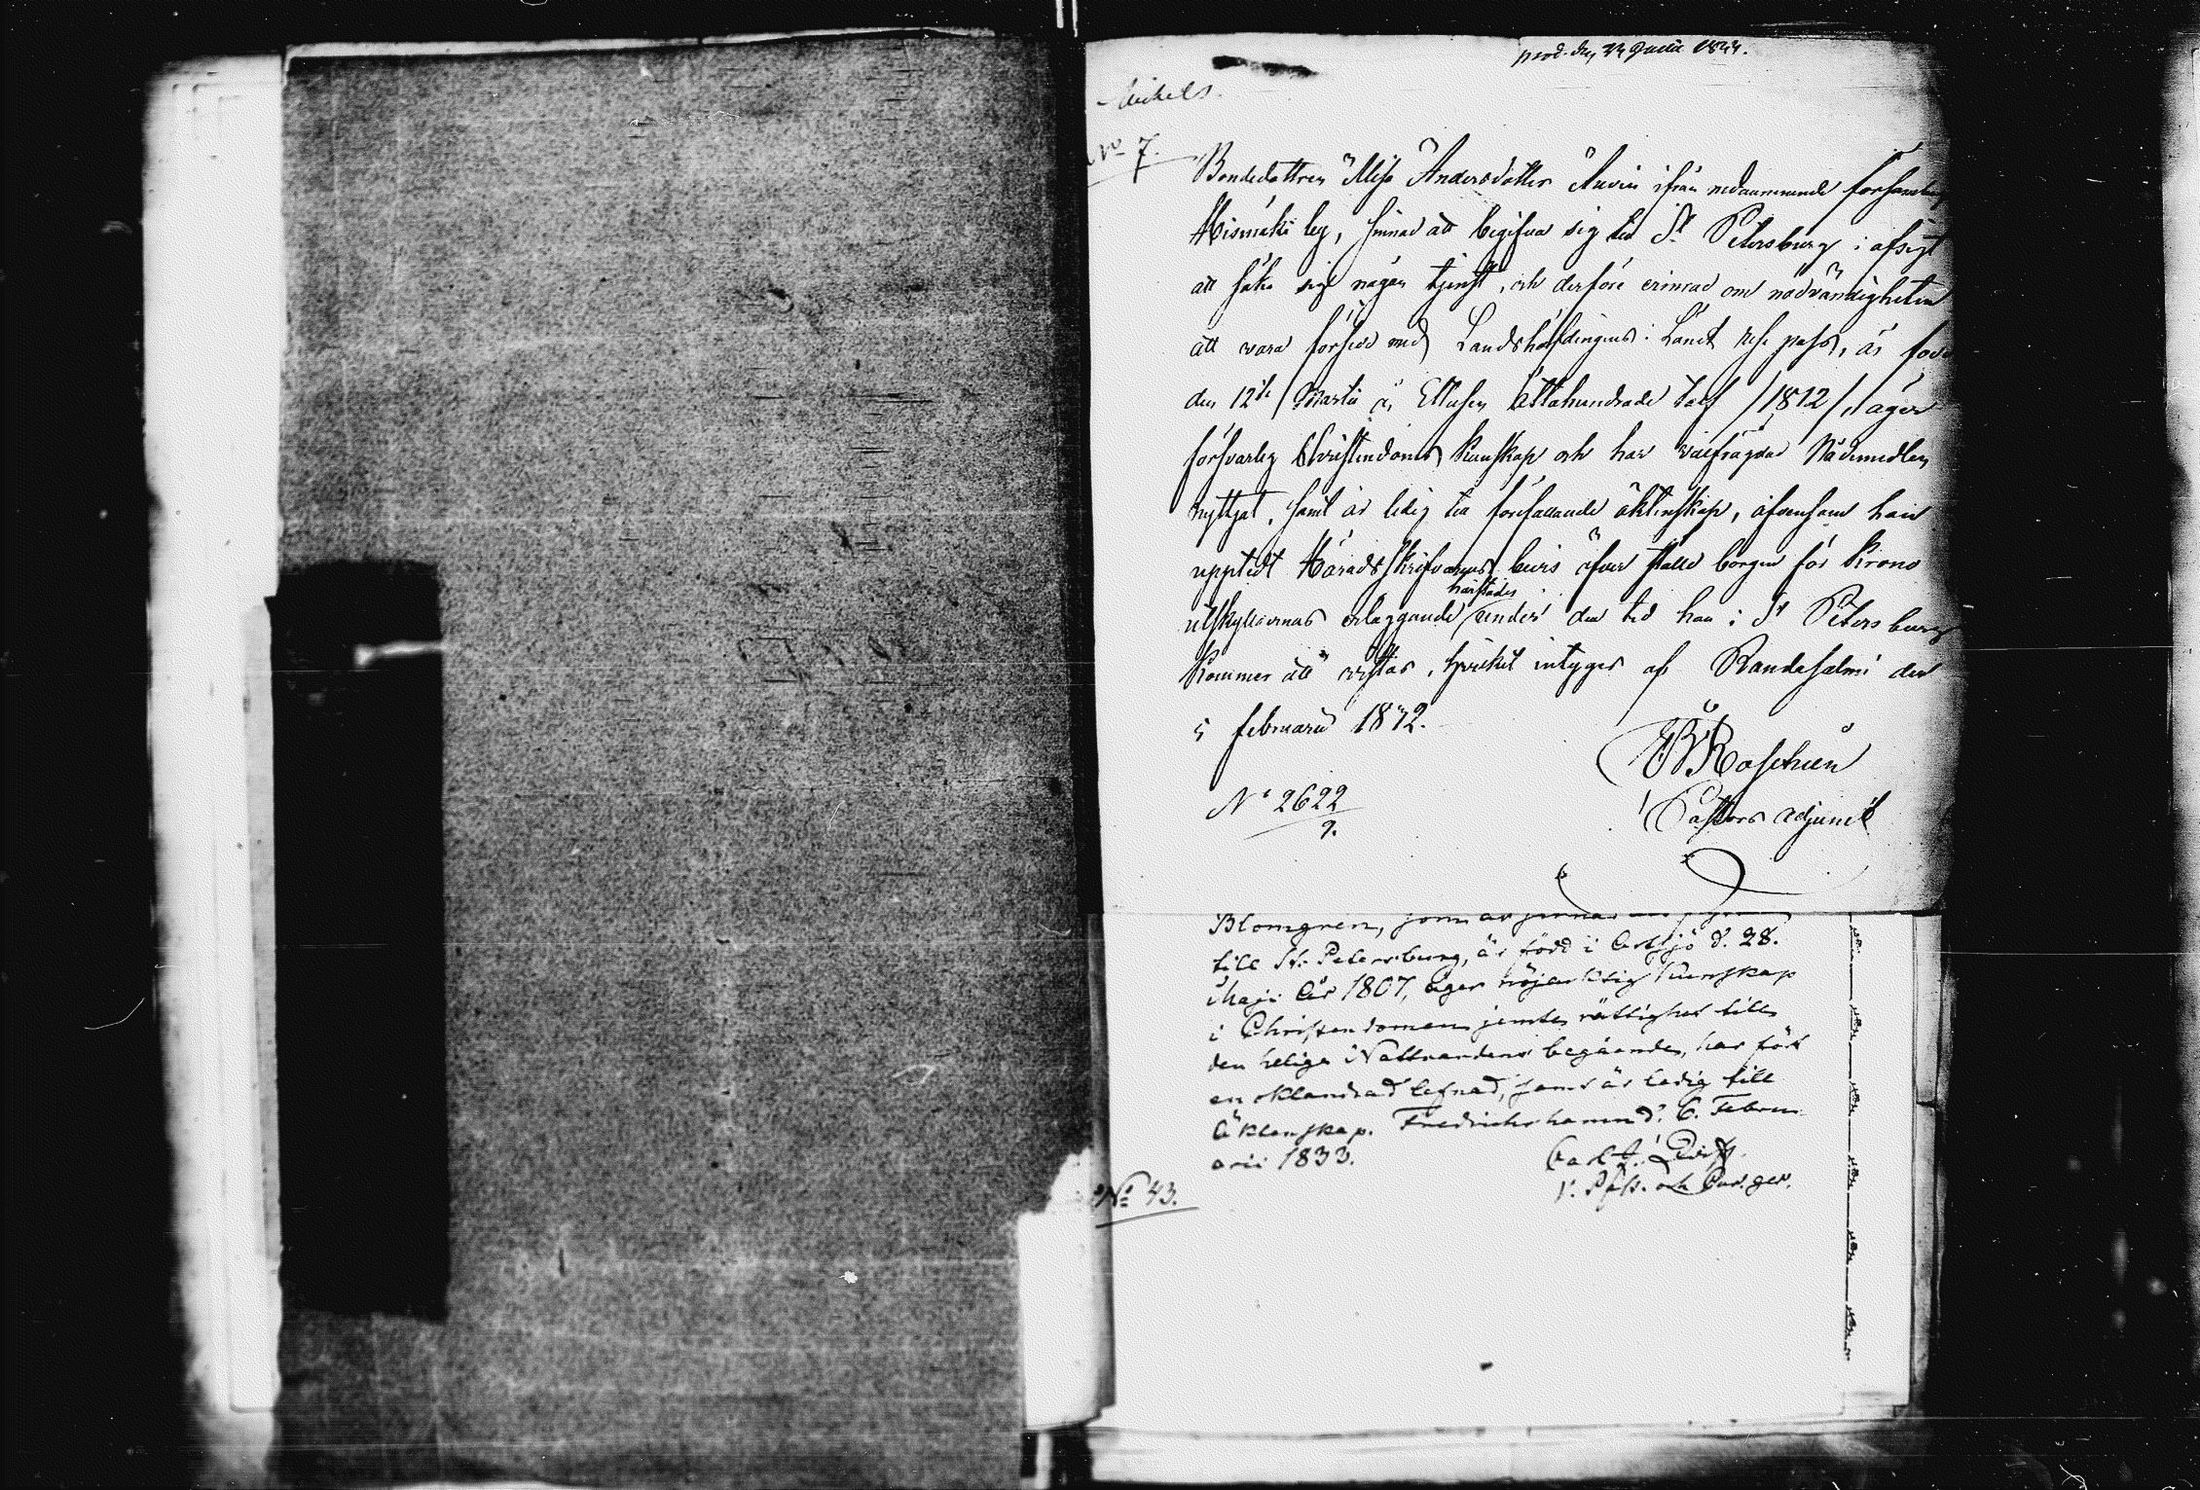 prod. den Junii
Michels
No 7.
Bondedottren Andersdotter ifrån nedannämnde församling
by, sinnad att begifva sig till St Petersburg i afsigt
att söka sig någon tjenst, och derföre erinrad om nödvändigheten
att vara försedd med Landshöfdingens i Länet rese pass, är född
den 12te Martii år Ettusen Åttahundrade tolf /1812/, äger
försvarlig Christendoms kunskap och har Nådemedlen
nyttjat, samt är ledig till förefallande äktenskap, äfvensom hon
upptedt Häradsskrifvarens bevis öfver ställd borgen för Krono
utskyldernas erläggande härstädes under den tid hon i St Petersburg
kommer att vistas, hvilket intygas af Randasalmi den
5 februarii 1832.
Roschier
Pastors adjunct
No 2622
9.
Blomgren, som är sinnad
till St. Petersburg, är född i d. 28.
Maji år 1807, äger nöjaktig kunskap
i Christendomen jemte rättighet till
den heliga Nattvardens begående, har fört
en oklandrad lefnad, samt är ledig till
Äktenskap. Fredrichshamn d. 6. Febru
arii 1833.
v. Past. och
No 43.